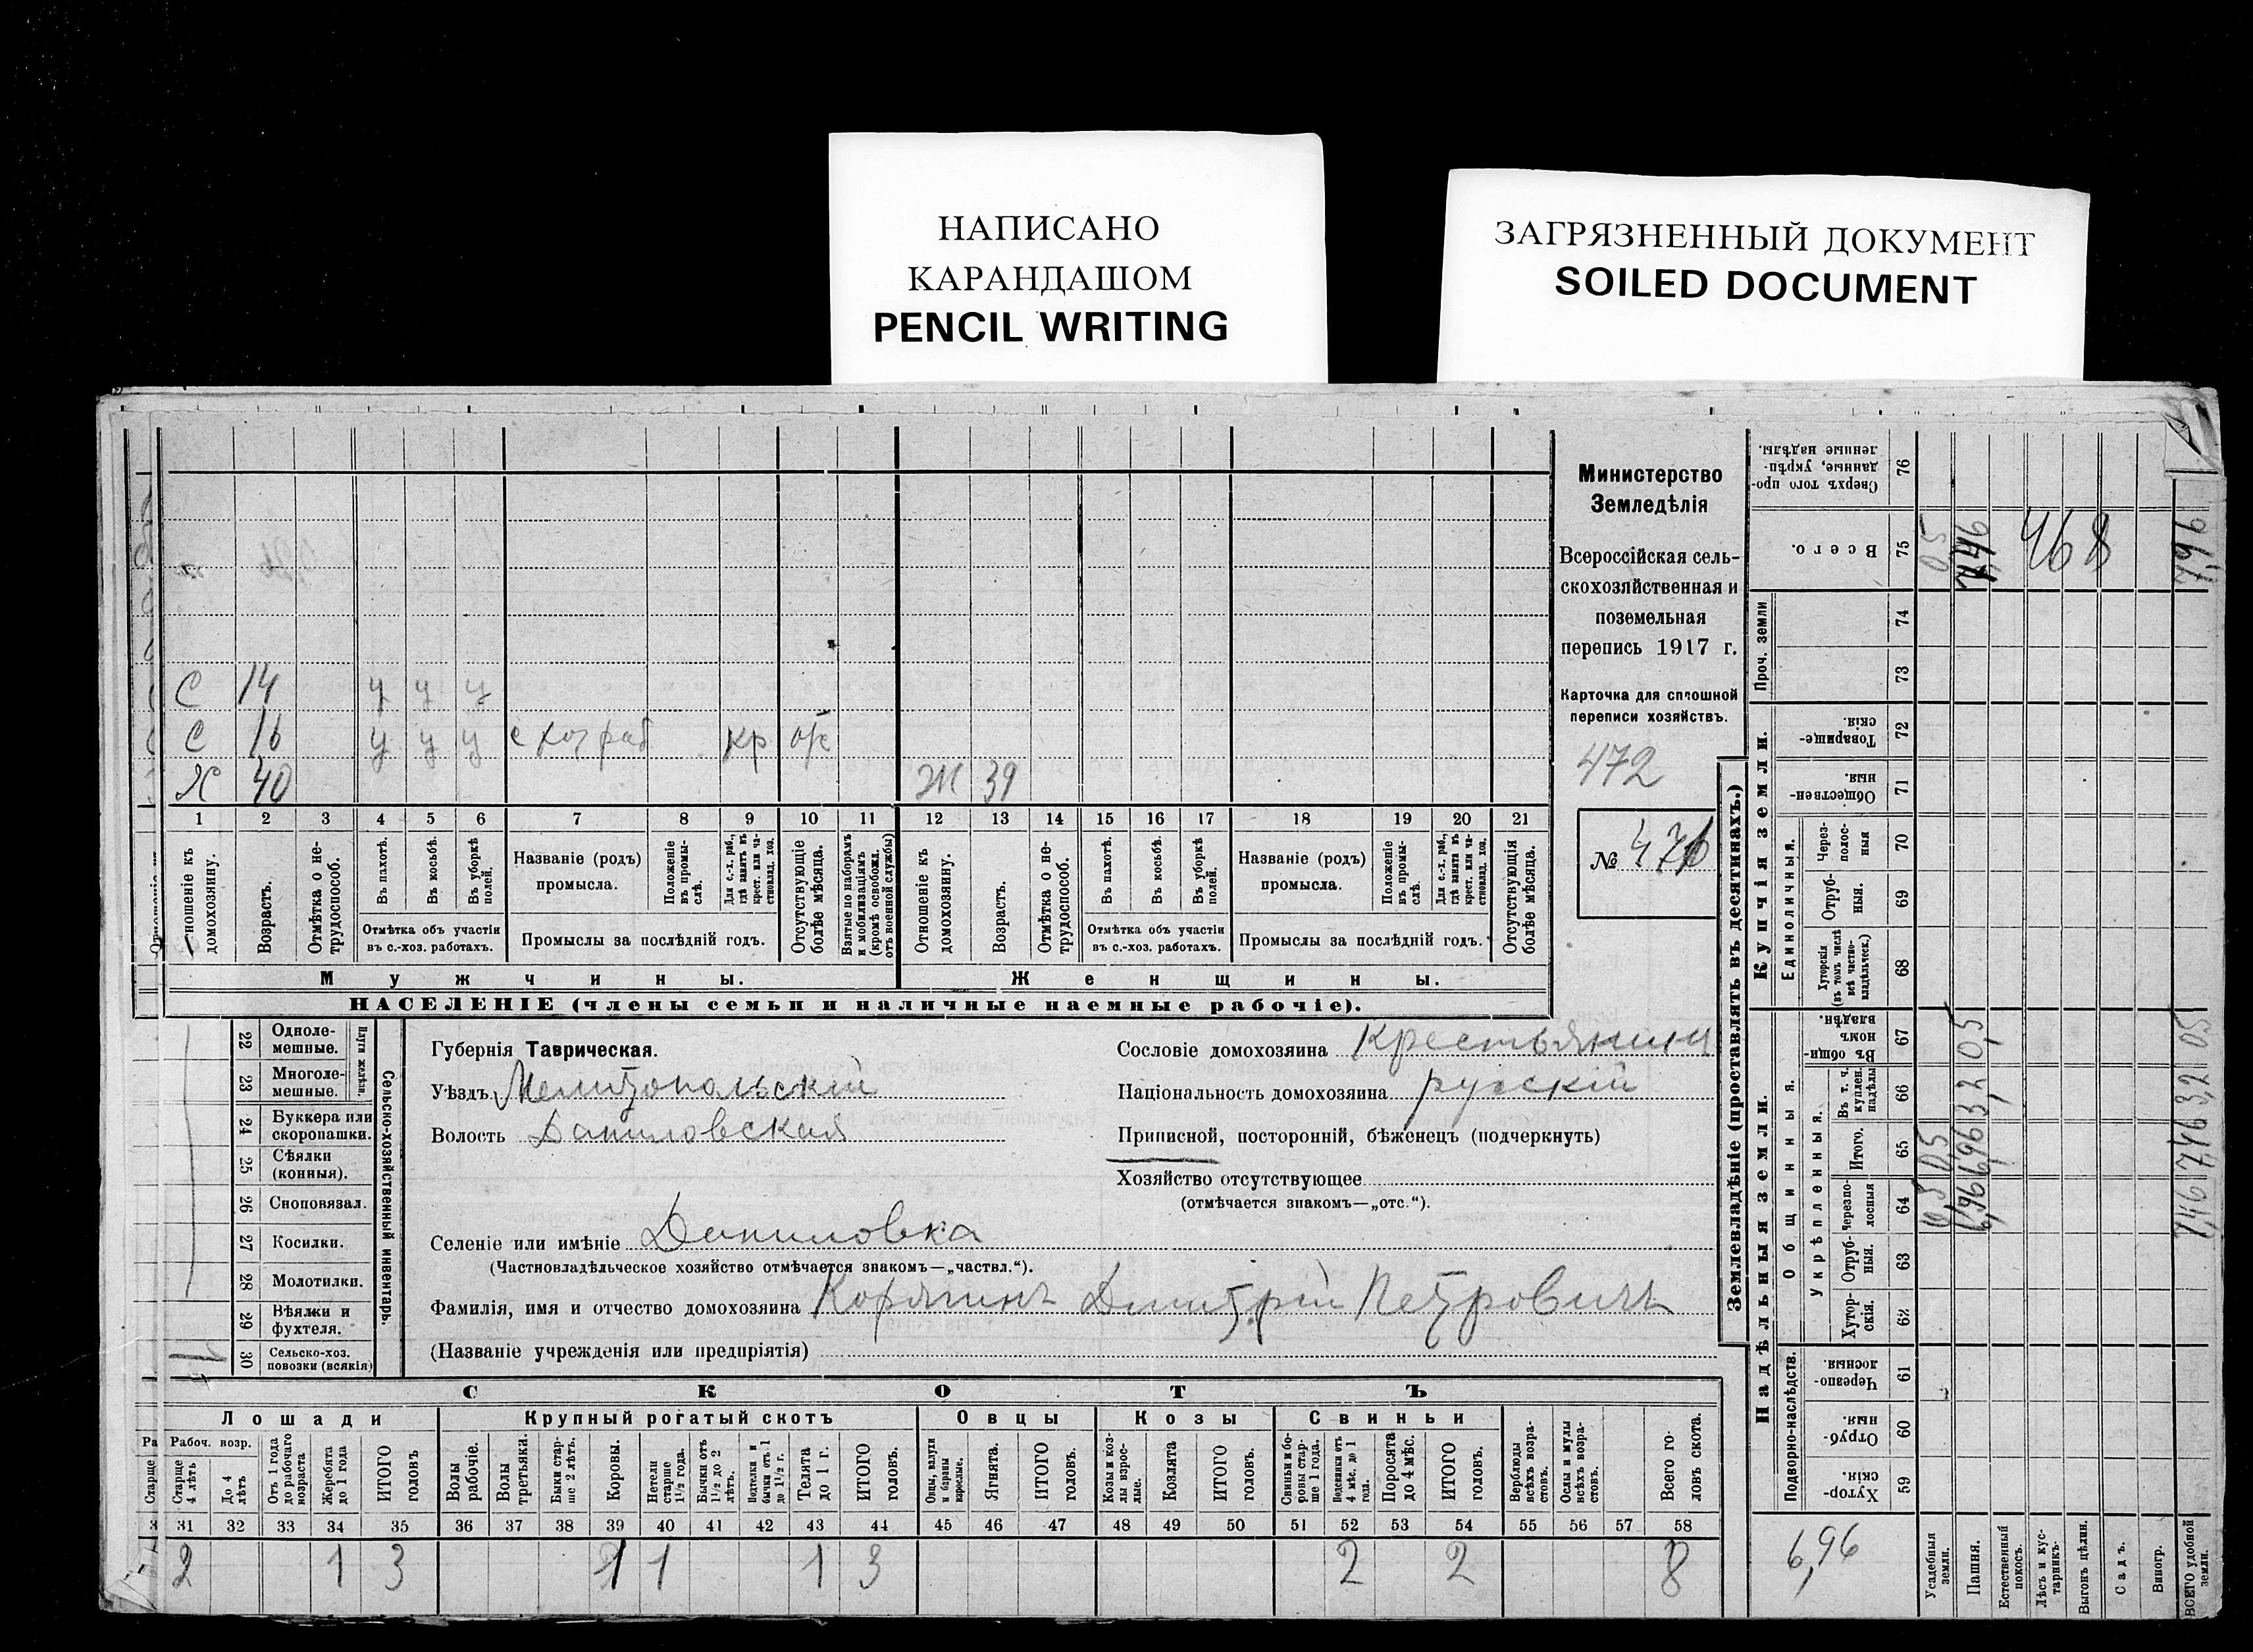 НАПИСАНО
КАРАНДАШОМ
PENCIL WRITING
ЗАГРЯЗНЕННЫЙ ДОКУМЕНТ
SOILED DOCUMENT
Министерство
Земледѣлія
Всероссійская сель-
скохозяйственная и
поземельная
перепись 1917 г.
Карточка для сплошной
переписи хозяйствъ.
472
№ 471
С 14 у у у
С 16 у у у с хоз раб кр отс
Х 40 Ж 39
1 2 3 4 5 6 7 8 9 10 11 12 13 14 15 16 17 18 19 20 21
Отношеніе къ домохозяину.
Возрастъ.
Отмѣтка о не-трудоспособ.
Въ пахотѣ.
Въ косьбѣ.
Въ уборкѣ полей.
Отмѣтка объ участіи въ с.-хоз. работахъ.
Названіе (родъ) промысла.
Положеніе въ промы-слѣ.
Для с.-х. раб., гдѣ занятъ въ крест. или ча-стновлад. хоз.
Промыслы за послѣдній годъ.
Отсутствующіе болѣе мѣсяца.
Взятые по наборамъ и мобилизаціямъ (кромѣ освобожд. отъ военной службы)
Отношеніе къ домохозяину.
Возрастъ.
Отмѣтка о не-трудоспособ.
Въ пахотѣ.
Въ косьбѣ.
Въ уборкѣ полей.
Отмѣтка объ участіи въ с.-хоз. работахъ.
Названіе (родъ) промысла.
Положеніе въ промы-слѣ.
Для с.-х. раб., гдѣ занята въ крест. или ча-стновлад. хоз.
Промыслы за послѣдній годъ.
Отсутствующія болѣе мѣсяца.
Мужчины.
Женщины.
НАСЕЛЕНІЕ (члены семьи и наличные наемные рабочіе).
22 Одноле-мешные.
23 Многоле-мешные.
Плуги желѣзн.
24 Буккера или скоропашки.
25 Сѣялки (конныя).
26 Сноповязал.
27 Косилки.
28 Молотилки.
29 Вѣялки и фухтеля.
30 Сельско-хоз. повозки (всякія)
1
Сельско-хозяйственный инвентарь.
Губернія Таврическая.
Уѣздъ Мелитопольскій
Волость Даниловская
Селеніе или имѣніе Даниловка
(Частновладѣльческое хозяйство отмѣчается знакомъ—„частвл.“).
Фамилія, имя и отчество домохозяина Корягинъ Дмитрій Петровичъ
(Названіе учрежденія или предпріятія)
Сословіе домохозяина Крестьянин
Національность домохозяина русскій
Приписной, посторонній, бѣженецъ (подчеркнуть)
Хозяйство отсутствующее
(отмѣчается знакомъ—„отс.“).
СКОТЪ
Лошади
Крупный рогатый скотъ
Овцы
Козы
Свиньи
Рабоч. возр.
Старше 4 лѣтъ
До 4 лѣтъ
Отъ 1 года до рабочаго возраста
Жеребята до 1 года
ИТОГО головъ
Волы рабочіе.
Волы третьяки.
Быки стар-ше 2 лѣтъ.
Коровы.
Нетели старше 1½ года.
Бычки отъ 1½ до 2 лѣтъ.
Подтелки и бычки отъ 1 до 1½ г.
Телята до 1 г.
ИТОГО головъ.
Овцы, валухи и бараны взрослые.
Ягнята.
ИТОГО головъ.
Козы и коз-лы взрос-лые.
Козлята
ИТОГО головъ.
Свиньи и бо-ровы стар-ше 1 года.
Подсвинки отъ 4 мѣс. до 1 года.
Поросята до 4 мѣс.
ИТОГО головъ.
Верблюды всѣхъ возра-стовъ.
Ослы и мулы всѣхъ возра-стовъ.
Всего го-ловъ скота.
31 32 33 34 35 36 37 38 39 40 41 42 43 44 45 46 47 48 49 50 51 52 53 54 55 56 57 58
2 1 3 1 1 1 3 2 2 8
Землевладѣніе (проставлять въ десятинахъ.)
Надѣльныя земли.
Купчія земли.
Проч. земли
Подворно-наслѣдств.
Общинныя.
Укрѣпленныя.
Единоличныя.
76 Сверхъ того про-данные, укрѣп-ленные надѣлы.
75 Всего.
74
73
72 Товарище-скія.
71 Обществен-ныя.
70 Через-полос-ныя
69 Отруб-ныя.
68 Хуторскія (въ томъ числѣ всѣ частно-владѣльческ.)
67 Въ общи-номъ владѣн.
66 Въ т. ч. куплен. надѣлы
65 Итого.
64 Черезпо-лосныя
63 Отруб-ныя.
62 Хутор-скія.
61 Черезпо-лосныя
60 Отруб-ныя.
59 Хутор-скія.
6,96
Усадебныя земли.
Пашня.
Естественный покосъ.
Лѣсъ и кус-тарникъ.
Выгонъ цѣлин.
Садъ.
Виногр.
ВСЕГО удобной земли.
0,5 0,5 0,5
6,96 6,96 3,2 0,5 7,46
468
7,46 7,46 3,2 0,5 7,96